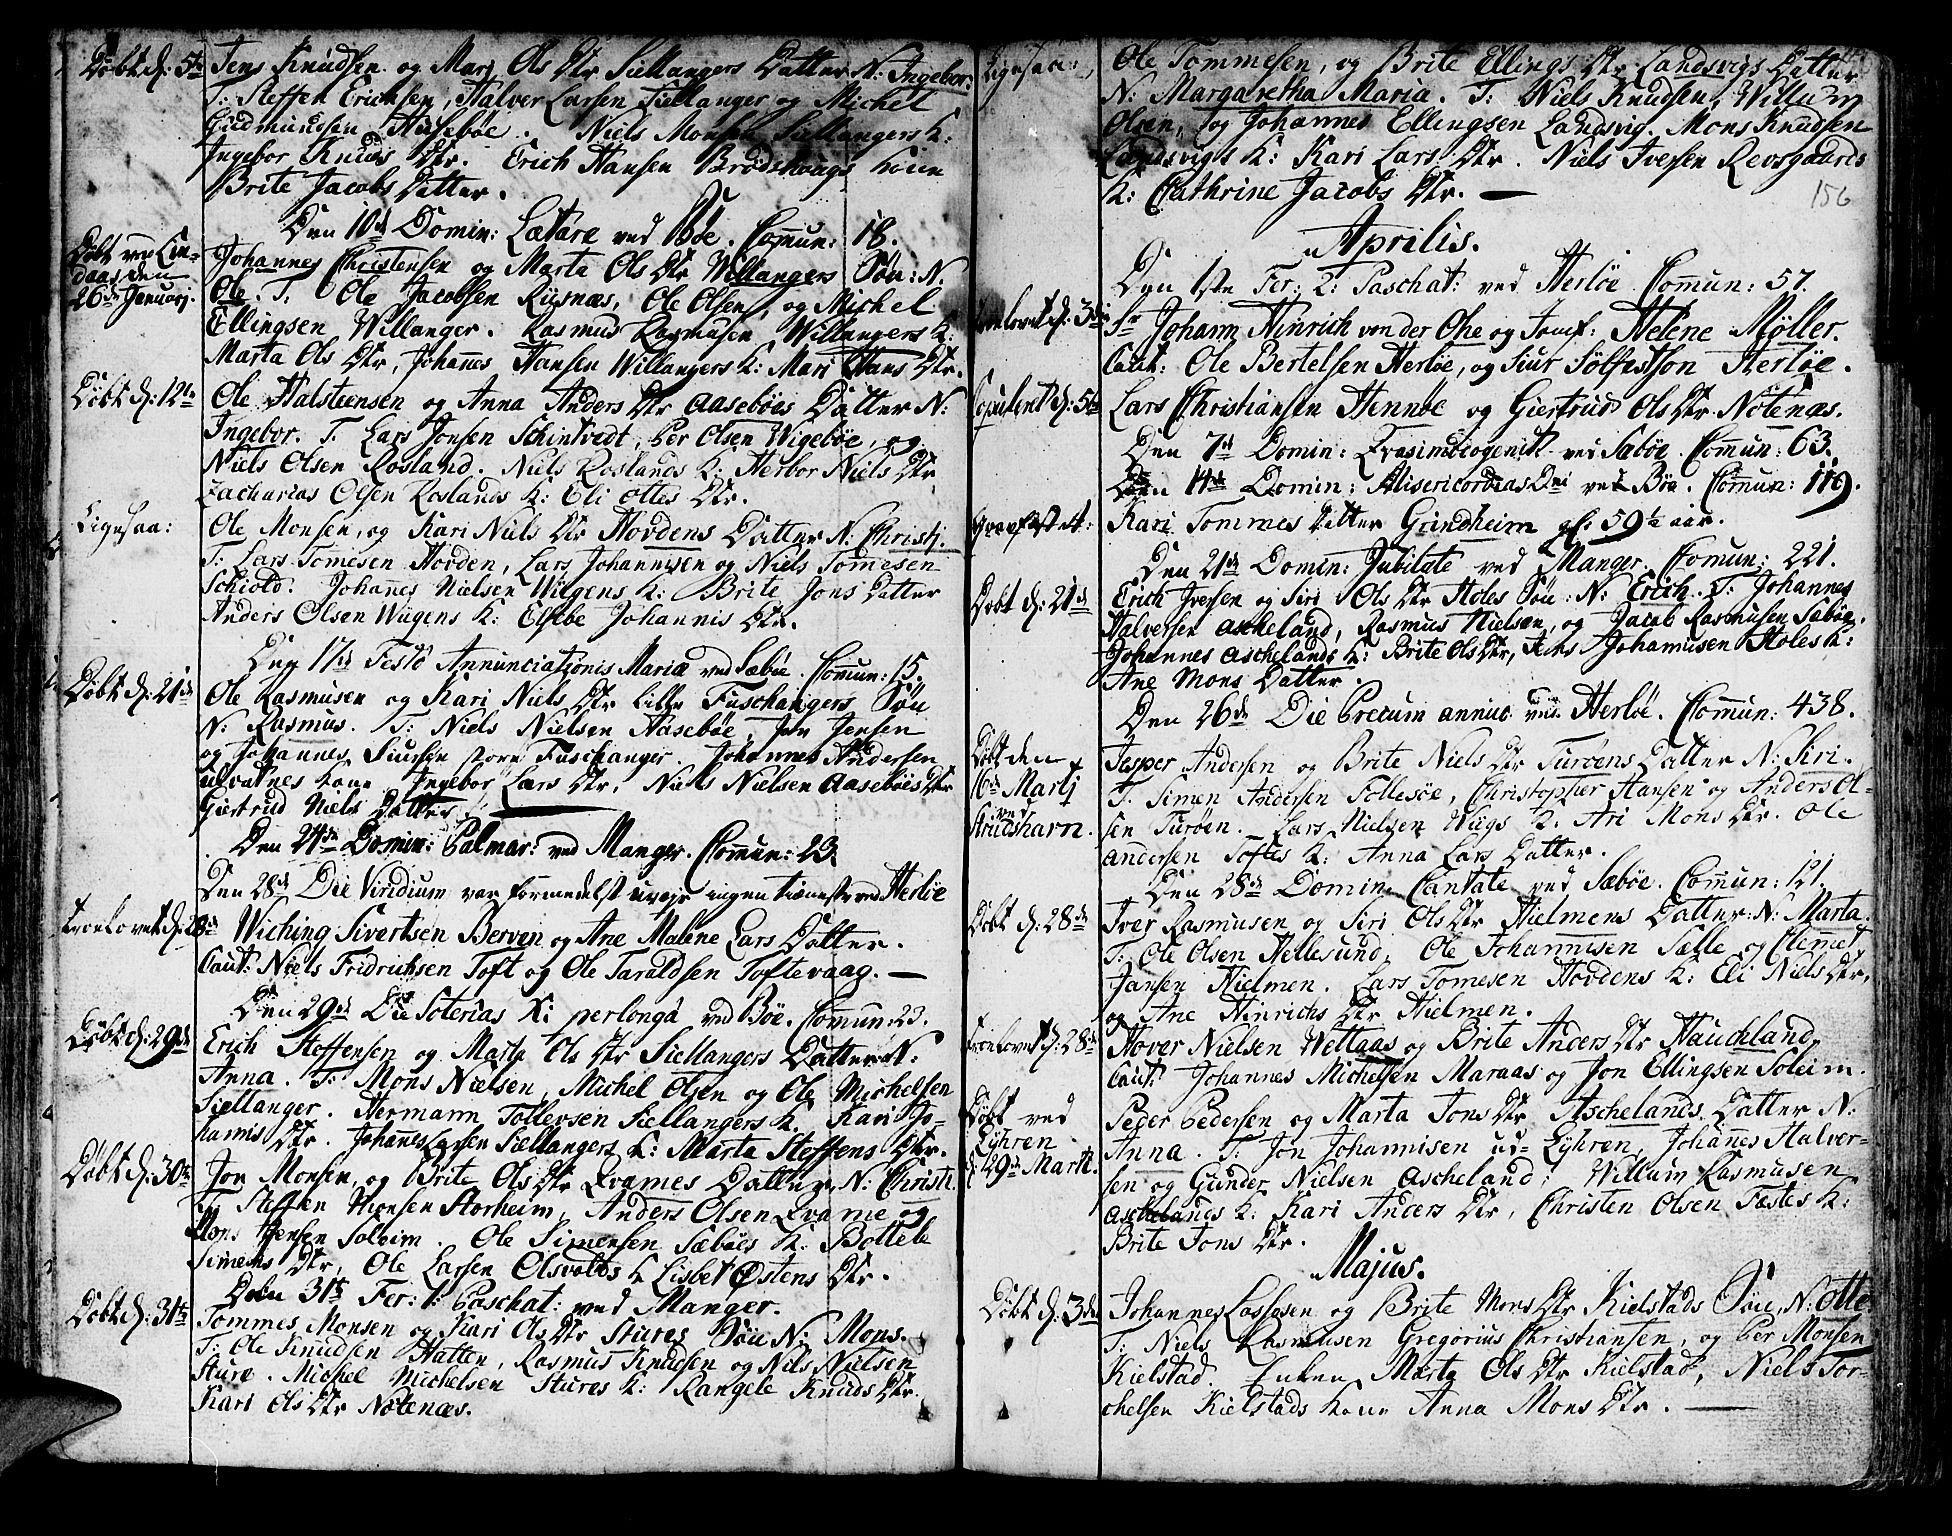 Døbt d: 5te Jens Knudsen og Mari Ols Dtr Siellangers Datter N: Ingebor.
T: Steffen Erichsen, Halver Larsen Siellanger og Michel
Gudmundsen Husebøe. Niels Monsen Siellangers K:
Ingebor Knuds Dtr. Erich Hansen Brødshougs Kone
Brite Jacobs Datter.
Den 10de Domin: Lætare ved Bøe. Comun: 18.
Døbt ved Lin-
daas den
26de Januarj.
Johannes Christensen og Marta Ols Dtr Willangers Søn: N.
Ole. T: Ole Jacobsen Riisnæs, Ole Olsen, og Michel
Ellingsen Willanger. Rasmus Rasmusen Willangers K:
Marta Ols Dtr, Johannes Hansen Willangers K: Mari Hans Dtr.
Døbt d: 12te Ole Halsteensen og Anna Anders Dtr Aasebøes Datter N:
Ingebor. T. Lars Jonsen Schintvedt, Per Olsen Wigebøe, og
Niels Olsen Rosland. Niels Roslands K: Herbor Niels Dtr
Zacharias Olsen Roslands K: Eli Ottes Dtr.
Ligesaa: Ole Monsen, og Kari Niels Dtr Hovdens Datter N: Christj.
T: Lars Tomesen Hovden, Lars Johannisen og Niels Tomesen
Schiold. Johannes Nielsen Wugens K: Brite Jons Datter
Anders Olsen Wugens K: Elsebe Johannis Dtr.
Den 17de Festo Annunciationis Mariæ ved Sæbøe. Comun: 15.
Døbt d: 21de Ole Rasmusen og Kari Niels Dtr Lille Fuschangers Søn
N: Rasmus. T: Niels Nielsen Aasebøe, Jon Jensen
og Johannes Siursen store Fuschanger. Johannes Andersen
Kone Ingebor Lars Dtr, Niels Nielsen Aasebøes Dtr
Giertrud Niels Datter.
Den 24de Domin: Palmar: ved Manger. Comun: 23.
Den 28de Die Viridium var formedelst uvejr ingen tieneste ved Herløe
Troelovet d: 28de Wiching Sivertsen Berven og Ane Malene Lars Datter.
Caut: Niels Fridrichsen Toft og Ole Taraldsen Toftevaag. —
Den 29de Die Soterias X: perlonga ved Bøe. Comun: 23.
Døbt d: 29de Erich Steffensen og Marta Ols Dtr Siellangers Datter N:
Anna. T: Mons Nielsen, Michel Olsen og Ole Michelsen
Siellanger. Hermann Tollevsen Siellangers K. Kari Jo-
hannis Dtr. Johannes Larsen Siellangers K: Marta Steffens Dtr.
Døbt d: 30te Jon Monsen, og Brite Ols Dtr Qvames Datter N: Christi.
T: Steffen Monsen Storheim, Anders Olsen Qvame og
Mons Jensen Soleim. Ole Simensen Sæbøes K: Bottele
Simens Dtr, Ole Larsen Olsvolds K Lisbet Østens Dtr.
Den 31te Fer: 1: Paschat: ved Manger.
Døbt d: 31te Tommes Monsen og Kari Ols Dtr Stures Søn N: Mons.
T: Ole Knudsen Hatten, Rasmus Knudsen og Nils Nielsen
Sture. Michel Michelsen Stures K: Rangele Knuds Dtr.
Kari Ols Dtr Nøtenæs.
156
Ligesaa: Ole Tommesen, og Brite Ellings Dtr Landsvigs Datter
N: Margaretha Maria. T: Niels Knudsen, Willum
Olsen, og Johannes Ellingsen Landsvig. Mons Knudsen
Landsvigs K: Kari Lars Dtr. Niels Iversen Revsgaards
K: Cathrine Jacobs Dtr. —
Aprilis.
Den 1ste Fer: 2: Paschat: ved Herløe. Comun: 57.
Troelovet d: 3die Sr Johann Hinrich von der Ohe og Jomf: Helene Møller.
Caut: Ole Bertelsen Herløe, og Siur Sølfestsøn Herløe.
Copuleret d: 5te Lars Christiansen Hennøe og Giertrud Ols Dtr Nøtenæs.
Den 7de Domin: Qvasimodogenit: ved Sæbøe. Comun: 63.
Den 14de Domin: Misericordias Dni ved Bøe. Comun: 119.
Gravfæstet: Kari Tommes Datter Grindheim gl: 59½ aar.
Den 21de Domin: Jubilate ved Manger. Comun: 221.
Døbt d: 21de Erich Iversen og Siri Ols Dtr Holes Søn: N: Erich. T: Johannes
Halversen Ascheland, Rasmus Nielsen, og Jacob Rasmusen Sæbøe.
Johannes Aschelands K: Brite Ols Dtr, Jens Johannisen Holes K:
Ane Mons Datter.
Den 26de Die Precum annuo ved Herløe. Comun: 438.
Døbt den
16de Martj
ved
Strudshavn.
Jesper Andersen og Brite Niels Dtr Turøens Datter N: Siri.
T. Simen Andersen Follesøe, Christopher Hansen og Anders Ol-
sen Turøen. Lars Nielsen Wiigs K: Ari Mons Dtr. Ole
Andersen Toftes K: Anna Lars Datter.
Den 28de Domin: Cantate ved Sæbøe. Comun: 121.
Døbt d: 28de Iver Rasmusen og Siri Ols Dtr Hielmens Datter: N: Marta.
T: Ole Olsen Hellesund, Ole Johannisen Sælle og Clemmet
Jansen Hielmen. Lars Tomesen Hovdens K: Eli Niels Dtr,
og Ane Hinrichs Dtr Hielmen.
Troelovet d: 28de Hover Nielsen Wettaas og Brite Anders Dtr Hauchland,
Caut: Johannes Michelsen Maraas og Jon Ellingsen Soleim.
Døbt ved
Lyhren
d: 29de Martii.
Peder Pedersen og Marta Jons Dtr Aschelands Datter N:
Anna. T: Jon Johannisen ud-Lyhren, Johannes Halver-
sen og Gunder Nielsen Ascheland; Willum Rasmusen
Aschelands K: Kari Anders Dtr, Christen Olsen Fæstes K:
Brite Jons Dtr.
Majus.
Døbt d: 3die Johannes Lassesen og Brite Mons Dtr Kielstads Søn, N: Otte
T: Niels Rasmusen Gregorius Christiansen, og Per Monsen
Kielstad. Enken Marta Ols Dtr Kielstad, Niels Tor-
chelsen Kielstads Kone Anna Mons Dtr. —